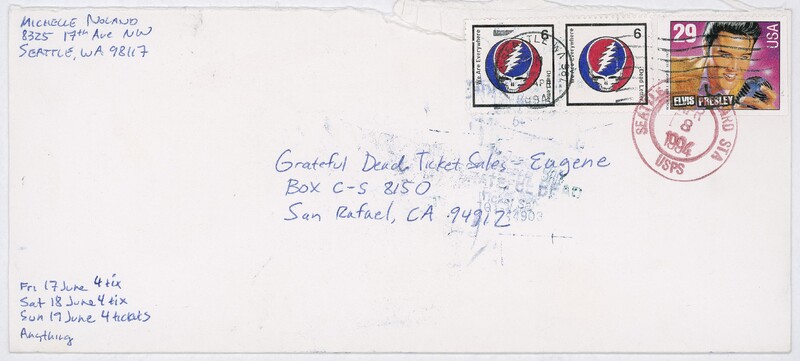 MICHELLE NOLAND
8325 17th Ave NW
SEATTLE, WA 98117
We Are Everywhere
6
Dead Letter
We Are Everywhere
6
Dead Letter
29
USA
ELVIS PRESLEY
SEATTLE
STA
8
1994
USPS
Grateful Dead Ticket Sales - Eugene
BOX C-S 8150
San Rafael, CA 94912
Fri 17 June 4 tix
Sat 18 June 4 tix
Sun 19 June 4 tickets
Anything